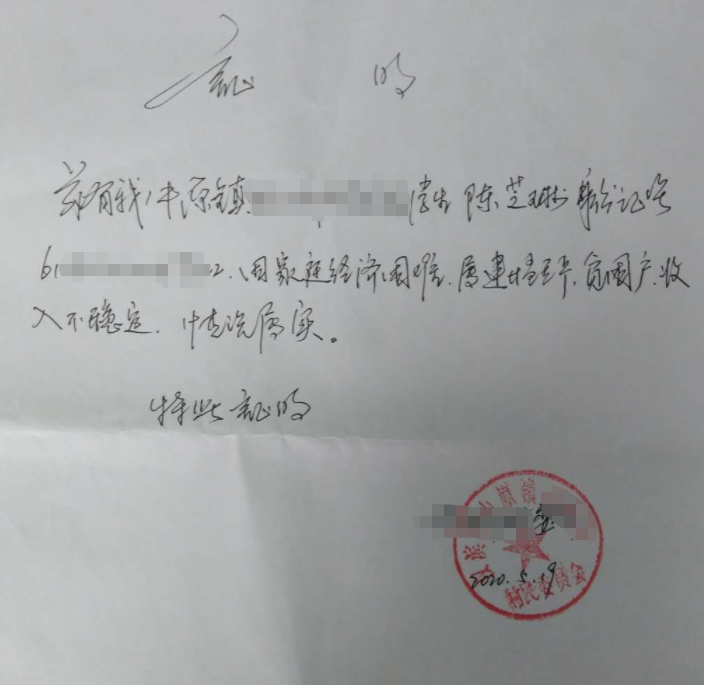 证 明
兹有我 源镇 学生 陈芝琳 身份证号
61 2.因家庭经济困难.属建档 贫困户.收
入不稳定.情况属实。
特此证明
委
2020.5.19
村民委员会